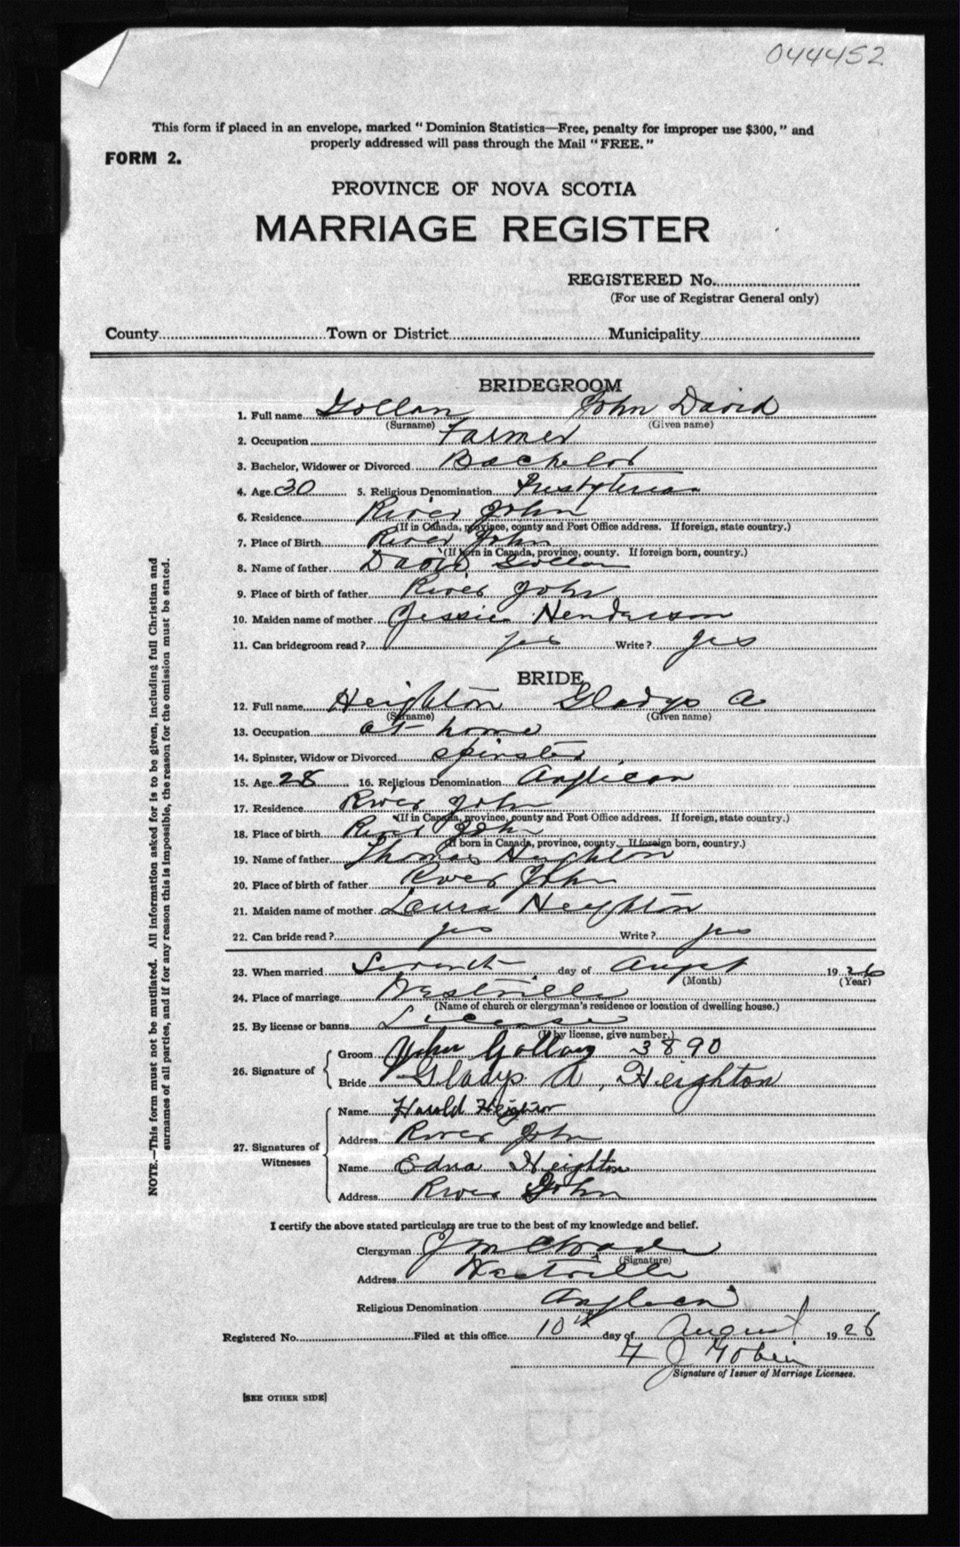 044452
This form if placed in an envelope, marked "Dominion Statistics—Free, penalty for improper use $300," and
properly addressed will pass through the Mail "FREE."
FORM 2.
PROVINCE OF NOVA SCOTIA
MARRIAGE REGISTER
REGISTERED No.
(For use of Registrar General only)
County Town or District Municipality
BRIDEGROOM
1. Full name Gollan John David
(Surname) (Given name)
2. Occupation Farmer
3. Bachelor, Widower or Divorced Bachelor
4. Age 30 5. Religious Denomination Presbyterian
6. Residence River John
(If in Canada, province, county and Post Office address. If foreign, state country.)
7. Place of Birth River John
(If born in Canada, province, county. If foreign born, country.)
8. Name of father David Gollan
9. Place of birth of father River John
10. Maiden name of mother Jessie Henderson
11. Can bridegroom read? yes Write? yes
BRIDE
12. Full name Heighton Gladys A
(Surname) (Given name)
13. Occupation at home
14. Spinster, Widow or Divorced spinster
15. Age 28 16. Religious Denomination Anglican
17. Residence River John
(If in Canada, province, county and Post Office address. If foreign, state country.)
18. Place of birth River John
(If born in Canada, province, county. If foreign born, country.)
19. Name of father Thomas Heighton
20. Place of birth of father River John
21. Maiden name of mother Laura Heighton
22. Can bride read? yes Write? yes
23. When married Seventh day of August 1926
(Month) (Year)
24. Place of marriage Westville
(Name of church or clergyman's residence or location of dwelling house.)
25. By license or banns License
(If by license, give number.)
26. Signature of Groom John Gollan 3890
Bride Gladys A. Heighton
27. Signatures of Witnesses
Name Harold Heighton
Address River John
Name Edna Heighton
Address River John
I certify the above stated particulars are true to the best of my knowledge and belief.
Clergyman
(Signature)
Address Westville
Religious Denomination Anglican
Registered No. Filed at this office 10th day of August 1926
Signature of Issuer of Marriage Licenses.
[SEE OTHER SIDE]
NOTE.—This form must not be mutilated. All information asked for is to be given, including full Christian and
surnames of all parties, and if for any reason this is impossible, the reason for the omission must be stated.